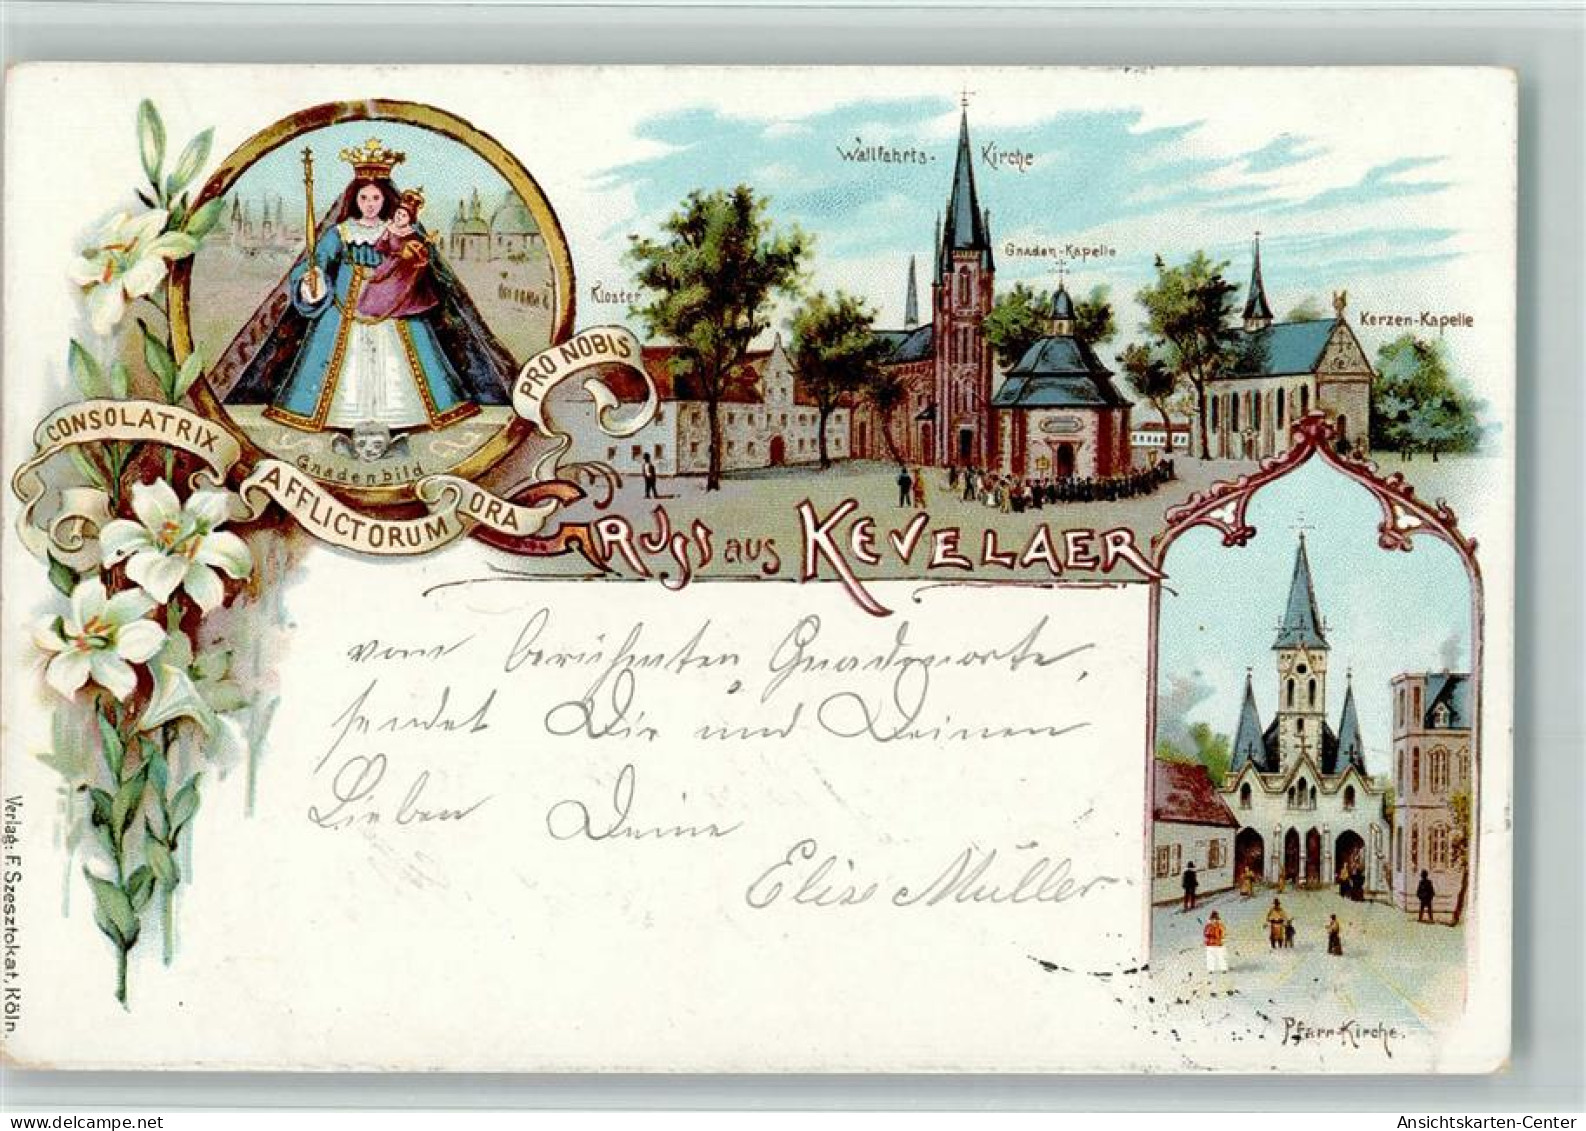 Wallfahrts-Kirche
Gnaden-Kapelle
Kloster
Kerzen-Kapelle
CONSOLATRIX AFFLICTORUM ORA PRO NOBIS
Gnadenbild
GRUSS aus KEVELAER
vom berühmten Gnadenorte,
sendet Dir und Deinen
Lieben Deine
Elise Müller
Pfarr-Kirche.
Verlag: F. Szesztokat, Köln.
Ansichtskarten-Center